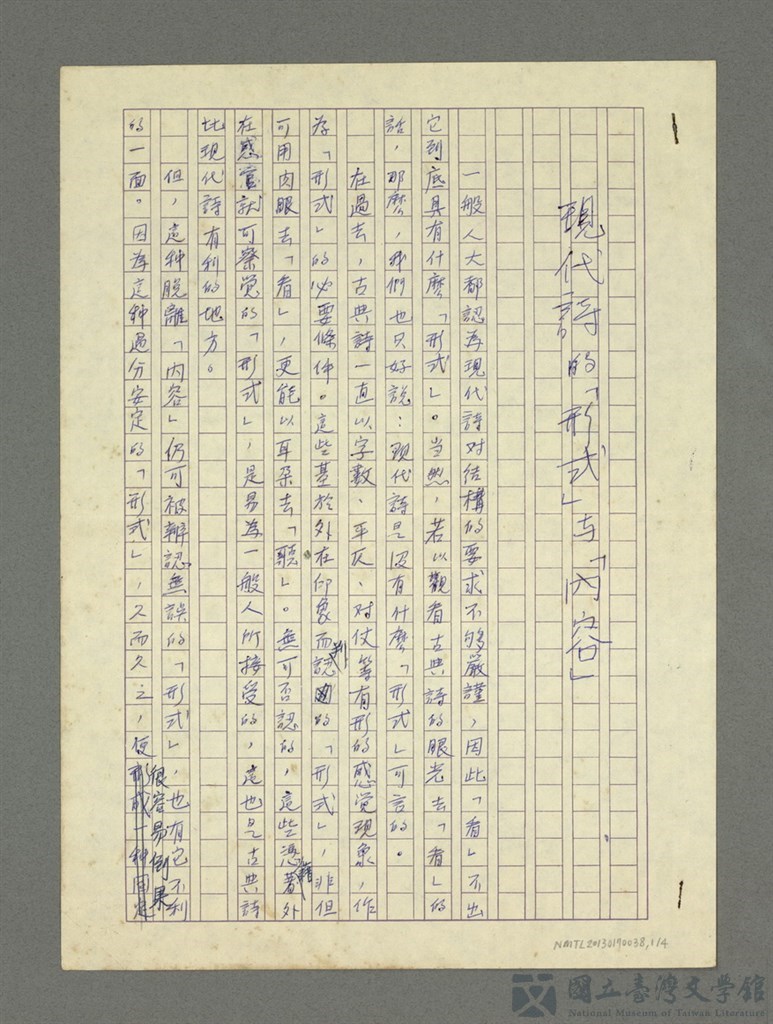 現代詩的「形式」与「內容」
一般人大都認为現代詩对结構的要求不够嚴謹，因此「看」不出
它到底具有什麼「形式」。当然，若以觀看古典詩的眼光去「看」的
話，那麼，我們也只好說：現代詩是没有什麼「形式」可言的。
在過去，古典詩一直以字數、平仄、对仗等有形的感覚現象，作
为「形式」的必要條件。這些基於外在印象而認判的「形式」，非但
可用肉眼去「看」，更能以耳朶去「聽」。無可否認的，這些憑藉外
在感官就可察覚的「形式」，是易為一般人所接受的，這也是古典詩
比現代詩有利的地方。
但，這种脱離「内容」仍可被辨認無誤的「形式」，也有它不利
的一面。因為這种過分安定的「形式」，久而久之，便很容易倒果
形成一种固定
NMTL20130190038,1/4
國立臺灣文學館
National Museum of Taiwan Literature